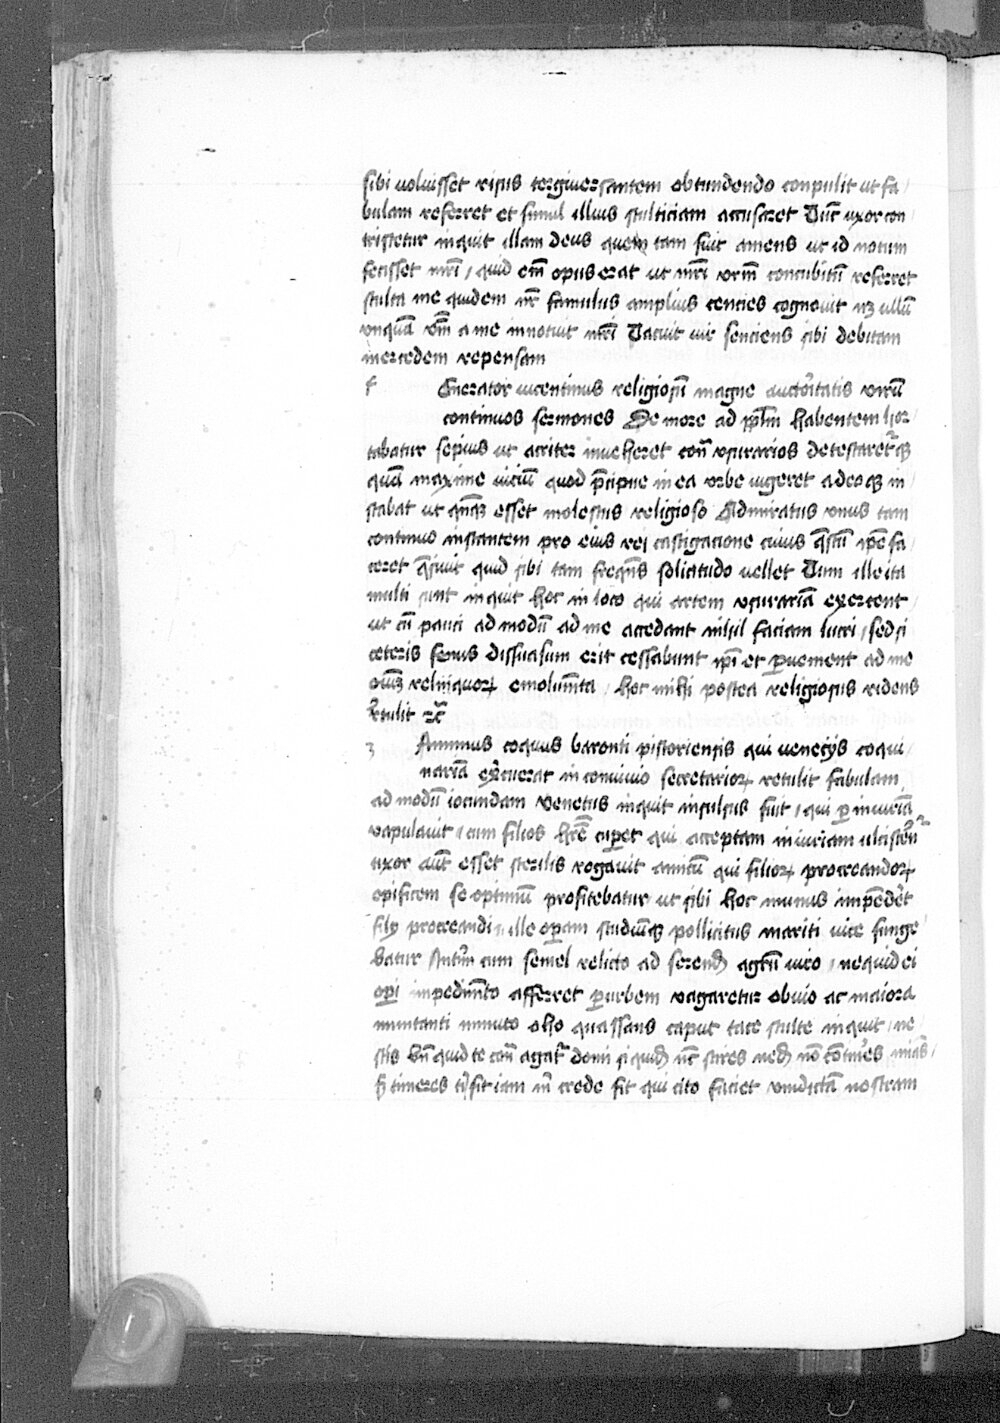 sibi uoluisset risus tergiuersantem obtundendo conpulit ut fa
bulam referret et simul illius stulticiam accusaret Tuc̄ uxor con
tristetur inquit illam deus quem tam fuit amens ut id notum
fecisset uīri / quid em̄ opus erat ut uīri urm̄ concubitū referret
stulta me quidem ur̄ famulus amplius centies cognouit nꝫ ullū
unquā uīm a me innotuit uīri Tacuit uir senciens sibi debitam
mercedem repensam
f Fenerator uicentinus religiosū magne auctoritatis uirū
continuos sermones De more ad ppl̄m habentem hor
tabatur sepius ut acriter inueheret cōn usurarios detestaretꝗ
quā maxime uiciū quod p̄cipue in ea urbe uigeret adeoꝗ in
stabat ut q̄nꝗ esset molestus religioso Admiratus unus tam
continuo instantem pro eius rei castigacione cuius q̄stū ip̄e fa
ceret q̄siuit quid sibi tam frequēs solicitudo uellet Tum ille ita
multi sunt inquit hoc in loco qui artem usurariā exercent
ut cū pauci ad modū ad me accedant nihil faciam lucri / sed si
ceteris fenus dissuasum erit cessabunt ip̄i et ꝑuenient ad me
relinquorꝝ emolumēta / hoc mihi postea religiosus ridens
r̄tulit ꝛc̄
3 Animus coquus baronti pistoriensis qui uenecijs coqui
nariā ex̄cuerat in conuiuio secretariorꝝ retulit fabulam
ad modū iocundam Venetus inquit insulsus fuit / qui ꝑ iniuriā
uapulauit / cum filios hr̄e cuꝑet qui acceptam iniuriam ulcisterē
uxor aūt esset sterilis rogauit amicū qui filiorꝝ procreandorꝝ
opificem se optimū profitebatur ut sibi hoc munus impēderet
filij procreandi ille oꝑam studiūꝗ pollicitus mariti uice funge
batur Antūr cum semel relicto ad serendū agrū uiro / ne quid ei
oꝑi impedimēto afferret ꝑ urbem uagaretur obuio ac maiora
minitanti inimico ocio quassans caput tace stulte inquit / ne
scis bn̄ quid te cōn agat̄ domi si quidē sc̄ scires nedū nō cōminēs
s̄ timeres tꝫ sit iam m̄ crede fit qui cito faciet uindictā nostram